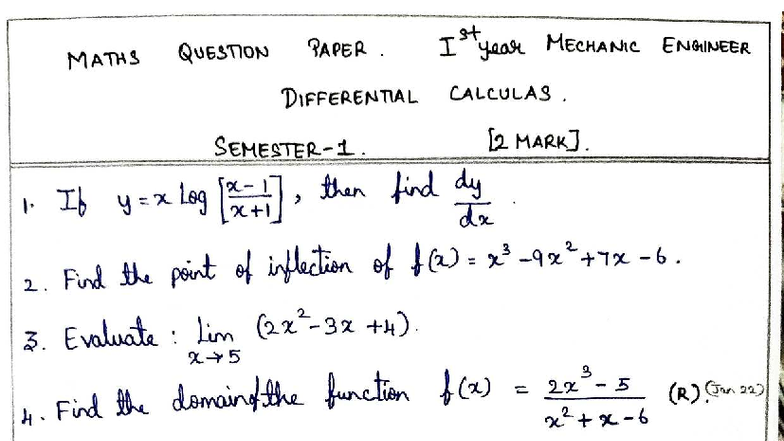 MATHS QUESTION PAPER. Ist year MECHANIC ENGINEER
DIFFERENTIAL CALCULAS.
SEMESTER-1. [2 MARK].
1. If y = x log [x-1/x+1], then find dy/dx.
2. Find the point of inflection of f(x) = x³ - 9x² + 7x - 6.
3. Evaluate : Lim x→5 (2x² - 3x + 4).
4. Find the domain of the function f(x) = 2x³ - 5 / x² + x - 6 (R). (Jan 22)